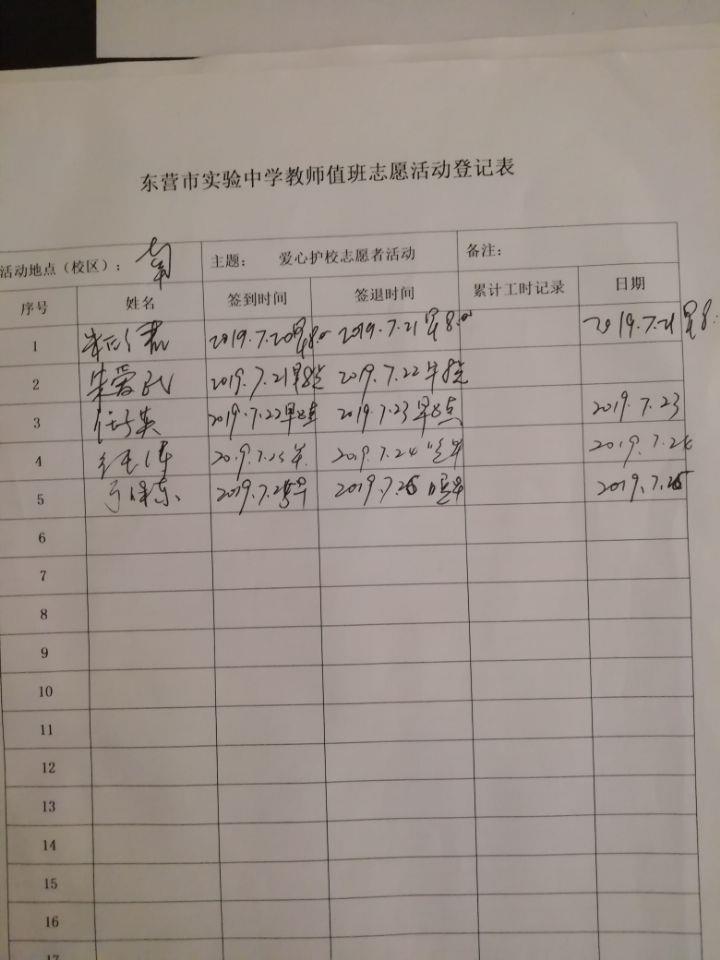 东营市实验中学教师值班志愿活动登记表
活动地点（校区）： 主题： 爱心护校志愿者活动 备注：
序号 姓名 签到时间 签退时间 累计工时记录 日期
1 2019.7.20早8.00 2019.7.21早8.00 2019.7.21早8.
2 朱爱民 2019.7.21早8点 2019.7.22早8点
3 任英 2019.7.22早8点 2019.7.23早8点 2019.7.23
4 2019.7.23早 2019.7.24 早 2019.7.24
5 2019.7.25早 2019.7.26 早 2019.7.26
6
7
8
9
10
11
12
13
14
15
16
17